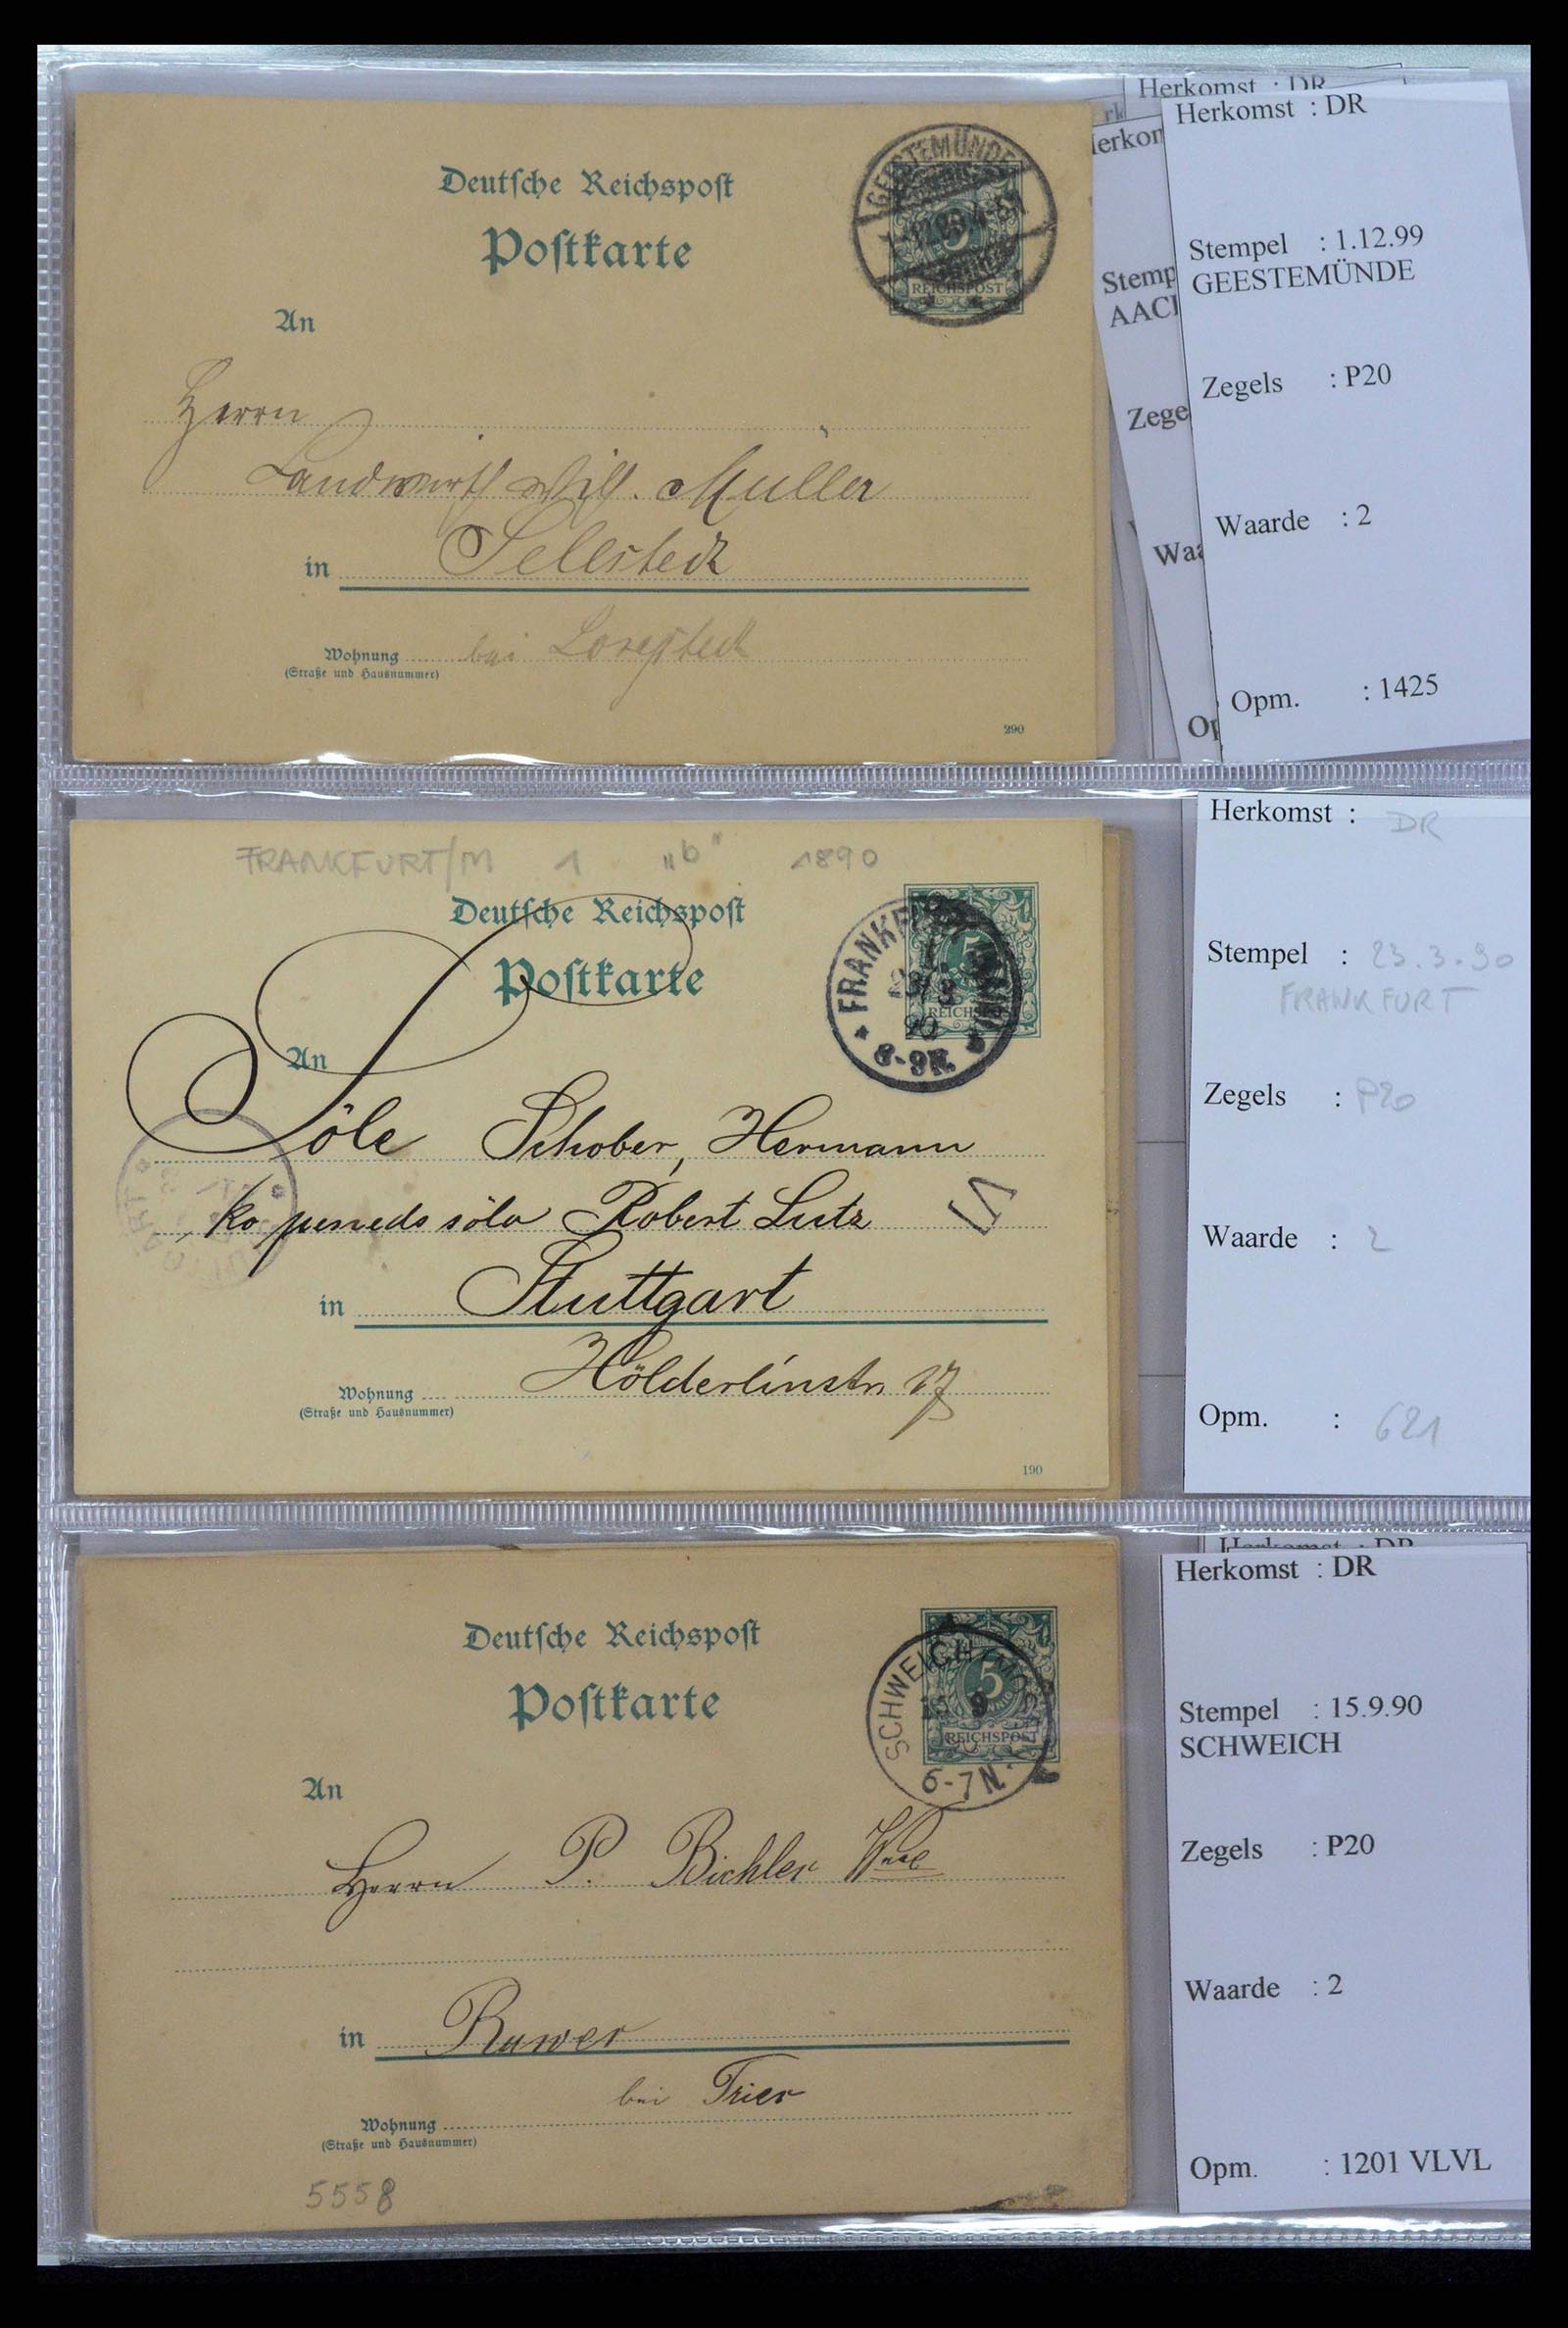 Deutsche Reichspost
Postkarte
GEESTEMÜNDE
REICHSPOST
An
Herrn
Landwirth Wilh. Müller
in Sellstedt
Wohnung bei Loxstedt
(Straße und Hausnummer)
290
Herkomst : DR
Herkomst : DR
Stempel : 1.12.99
GEESTEMÜNDE
Zegels : P20
Waarde : 2
Opm. : 1425
FRANKFURT/M 1 "b" 1890
Deutsche Reichspost
Postkarte
5
REICHSPOST
8-9N.
An
Schober, Hermann
Robert Lutz
in Stuttgart
Hölderlinstr. 17
Wohnung
(Straße und Hausnummer)
190
Herkomst : DR
Stempel : 23.3.90
FRANKFURT
Zegels : P20
Waarde : 2
Opm. : 621
Deutsche Reichspost
Postkarte
SCHWEICH
5
REICHSPOST
6-7N.
An
Herrn P. Bichler Wwe
in Ruwer
bei Trier
Wohnung
(Straße und Hausnummer)
5558
Herkomst : DR
Herkomst : DR
Stempel : 15.9.90
SCHWEICH
Zegels : P20
Waarde : 2
Opm. : 1201 VLVL